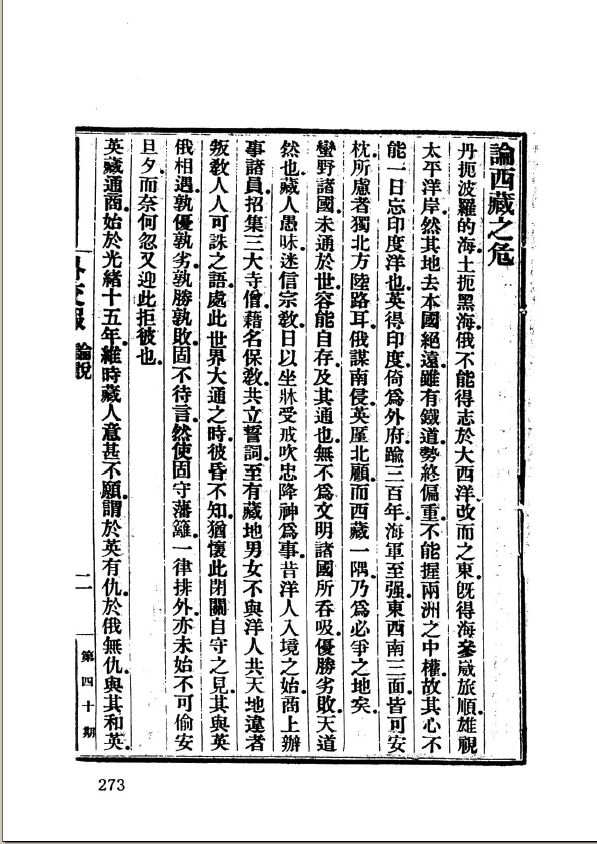 論西藏之危
丹扼波羅的海土扼黑海俄不能得志於大西洋改而之東旣得海參崴旅順雄視
太平洋岸然其地去本國絕遠雖有鐵道勢終偏重不能握兩洲之中權故其心不
能一日忘印度洋也英得印度倚爲外府踰三百年海軍至强東西南三面皆可安
枕所慮者獨北方陸路耳俄謀南侵英厪北顧而西藏一隅乃爲必爭之地矣
蠻野諸國未通於世容能自存及其通也無不爲文明諸國所吞吸優勝劣敗天道
然也藏人愚昧迷信宗敎日以坐牀受戒吹忠降神爲事昔洋人入境之始商上辦
事諸員招集三大寺僧藉名保敎共立誓詞至有藏地男女不與洋人共天地違者
叛敎人人可誅之語處此世界大通之時彼昏不知猶懷此閉關自守之見其與英
俄相遇孰優孰劣孰勝孰敗固不待言然使固守藩籬一律排外亦未始不可偷安
旦夕而奈何忽又迎此拒彼也
英藏通商始於光緖十五年維時藏人意甚不願謂於英有仇於俄無仇與其和英
外交報 論說
二
第四十期
273